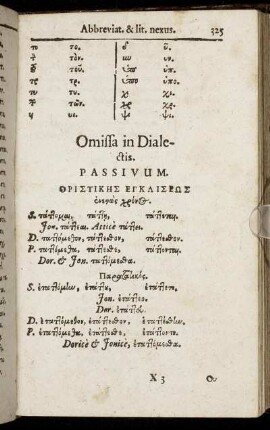 Abbreviat. & lit. nexus. 325
το.
τὸν. υν.
τοῦ. ὑπ.
τρ. ὑπο.
τυ. χι.
τῶν. χρ.
υι. ψι.
Omissa in Diale-
ctis.
PASSIVUM.
ΟΡΙΣΤΙΚΗΣ ΕΓΚΛΙΣΕΩΣ
S. τύπτομαι, τύπτῃ, τύπτεται.
Ion. τύπτεαι. Atticè τύπτει.
D. τυπτόμεθον, τύπτεσθον, τύπτεσθον.
P. τυπτόμεθα, τύπτεσθε, τύπτονται.
Dor. & Ion. τυπτόμεσθα.
Παρατατικός.
S. ἐτυπτόμην, ἐτύπτου, ἐτύπτετο.
Ion. ἐτύπτεο.
Dor. ἐτύπτευ.
D. ἐτυπτόμεθον, ἐτύπτεσθον, ἐτυπτέσθην.
P. ἐτυπτόμεθα, ἐτύπτεσθε, ἐτύπτοντο.
Doricè & Ionicè, ἐτυπτόμεσθα.
X 3